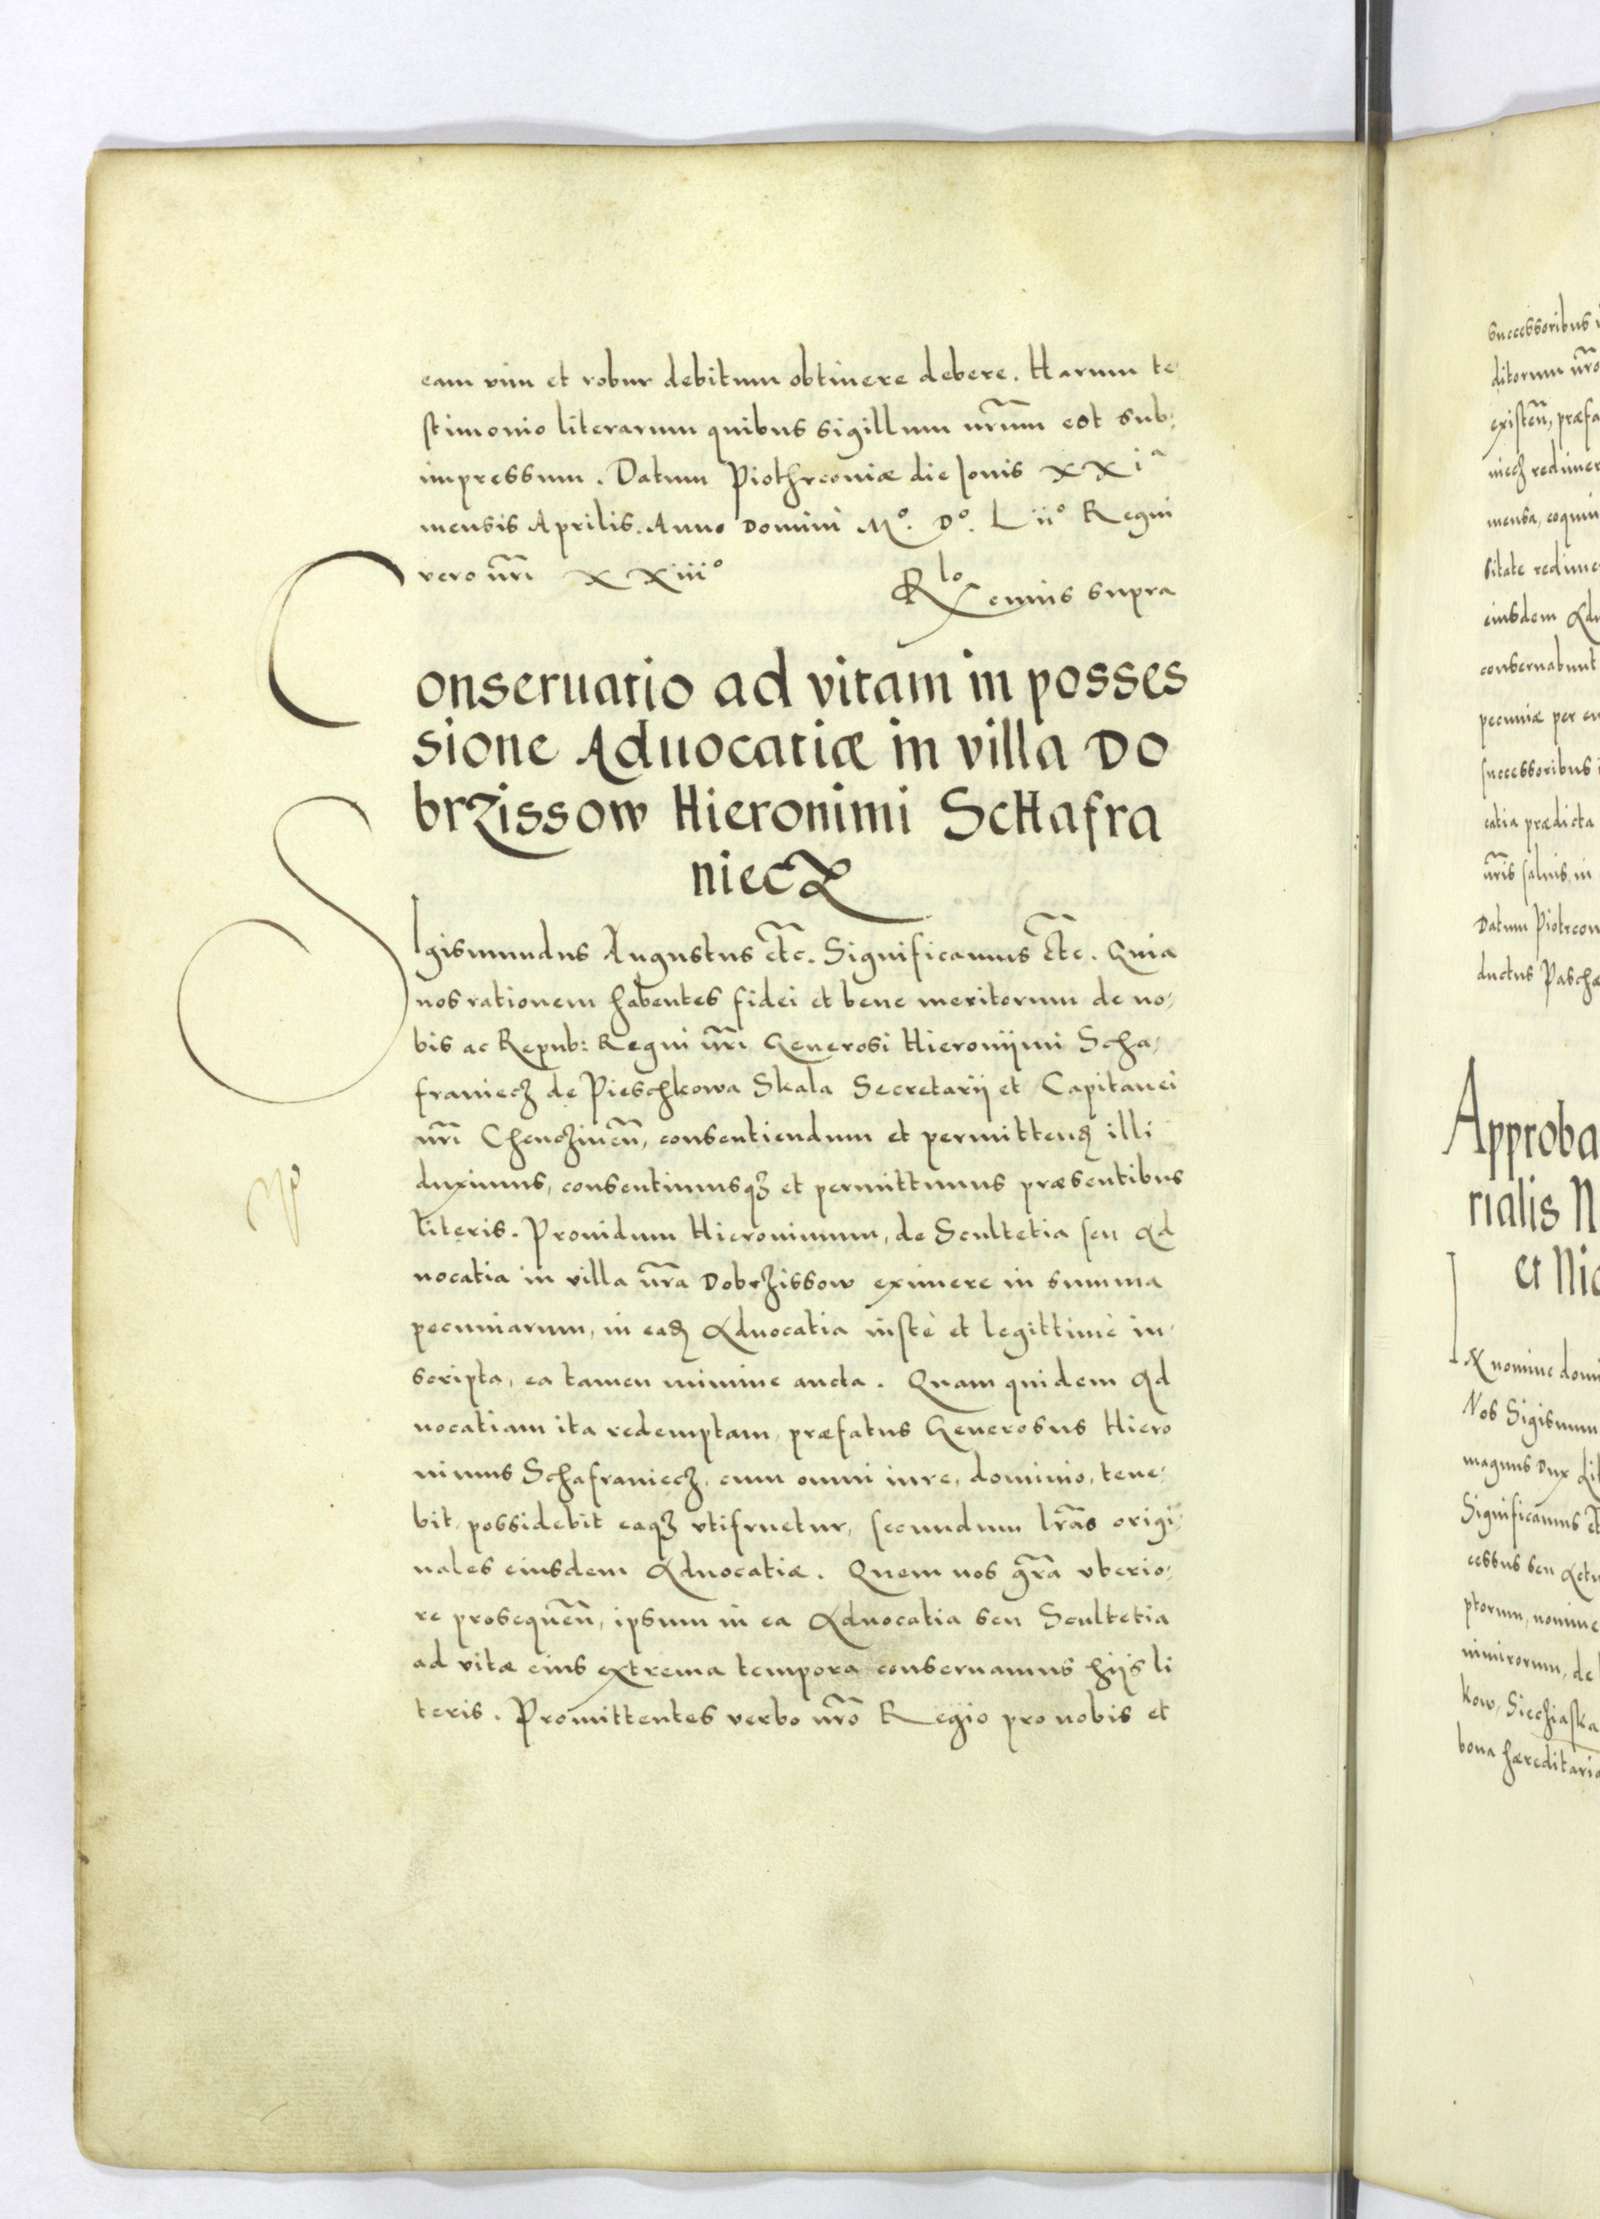 eam vim et robur debitum obtinere debere. Harum te-
stimonio literarum quibus sigillum nr̃um est sub-
impressum. Datum Piothrconiæ die Iouis XXIa
mensis Aprilis. Anno Domini Mo. Do. Liio Regni
vero nr̃i XXiiio
Rlo eiius supra
Conseruatio ad vitam in posses
sione Aduocatiæ in villa Do
brzissow Hieronimi Schafra
niecz
Sigismundus Augustus etc̃. Significamus etc̃. Quia
nos rationem habentes fidei et bene meritorum de no-
bis ac Repub: Regni nr̃i Generosi Hieroniimi Scha-
franiecz de Pieschkowa Skala Secretarij et Capitanei
nr̃i Chenczineñ, consentiendum et permittenđ illi
duximus, consentimusqz et permittimus præsentibus
literis. Prouidum Hieronimum, de Scultetia seu Ad
uocatia in villa nr̃a Dobrzissow eximere in summa
pecuniarum, in eađ Aduocatia iustè et legittimè in-
scripta, ea tamen minime aucta. Quam quidem Ad
uocatiam ita redemptam, præfatus Generosus Hiero
nimus Schafraniecz, cum omni iure, dominio, tene-
bit, possidebit eaqz vtifruetur, secundum lr̃as origi-
nales eiusdem Aduocatiæ. Quem nos gr̃a vberio-
re prosequeñ, ipsum in ea Aduocatia seu Scultetia
ad vitæ eius extrema tempora conseruamus hijs li
teris. Promittentes verbo nr̃o Regio pro nobis et
successoribus
ditorum nr̃o
existeñ, præfa
niecz redimer
mensa, coquin
sitate redime
eiusdem Adu
conseruabunt
pecuniæ per eu
successoribus
catia prædicta
nr̃is saluis, in
Datum Piotrcon
ductus Paschæ
Approba
rialis N
et Nic
IN nomine domi
Nos Sigismun
magnus Dux Lit
Significamus et
cessus seu Actu
ptorum, nomine
nimirorum, de
kow, Siechiaska
bona hæreditaria